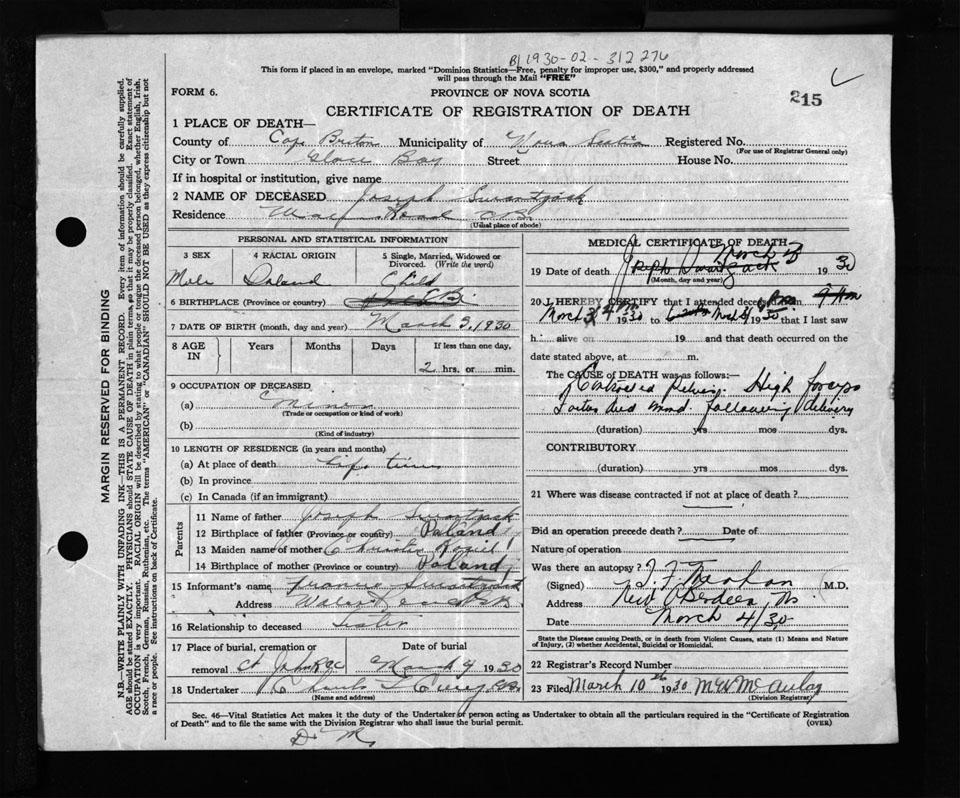 B 1930-02-312276
This form if placed in an envelope, marked "Dominion Statistics—Free, penalty for improper use, $300," and properly addressed
will pass through the Mail "FREE"
215
FORM 6. PROVINCE OF NOVA SCOTIA
CERTIFICATE OF REGISTRATION OF DEATH
1 PLACE OF DEATH—
County of Cape Breton Municipality of Nova Scotia Registered No.
(For use of Registrar General only)
City or Town Glace Bay Street House No.
If in hospital or institution, give name
2 NAME OF DECEASED Joseph
Residence Road C.B.
(Usual place of abode)
MARGIN RESERVED FOR BINDING
N.B—WRITE PLAINLY WITH UNFADING INK—THIS IS A PERMANENT RECORD. Every item of information should be carefully supplied.
AGE should be stated EXACTLY. PHYSICIANS should STATE CAUSE OF DEATH in plain terms, so that it may be properly classified. Exact statement of
OCCUPATION is very important. RACIAL ORIGIN will be described by stating to what people or tongue the deceased person belonged, whether English, Irish,
Scotch, French, German, Russian, Ruthenian, etc. The terms "AMERICAN" or "CANADIAN" SHOULD NOT BE USED as they express citizenship but not
a race or people. See instructions on back of Certificate.
PERSONAL AND STATISTICAL INFORMATION
3 SEX 4 RACIAL ORIGIN 5 Single, Married, Widowed or
Divorced. (Write the word)
Male Poland Child
6 BIRTHPLACE (Province or country) C.B.
7 DATE OF BIRTH (month, day and year) March 3, 1930
8 AGE IN Years Months Days If less than one day,
2 hrs. or min.
9 OCCUPATION OF DECEASED
(a)
(Trade or occupation or kind of work)
(b)
(Kind of industry)
10 LENGTH OF RESIDENCE (in years and months)
(a) At place of death Life time
(b) In province
(c) In Canada (if an immigrant)
Parents
11 Name of father Joseph
12 Birthplace of father (Province or country) Poland
13 Maiden name of mother
14 Birthplace of mother (Province or country) Poland
15 Informant's name
Address
16 Relationship to deceased Sister
17 Place of burial, cremation or removal Date of burial
March 4 1930
18 Undertaker
(Name and address)
MEDICAL CERTIFICATE OF DEATH
March 3
19 Date of death Joseph 1930
(Month, day and year)
20 I HEREBY CERTIFY that I attended deceased from
March 3 1930 to 1930 that I last saw
h alive on 19 and that death occurred on
date stated above, at m.
The CAUSE of DEATH was as follows:—
Contracted Pelvis. High forceps
died following delivery
(duration) yrs mos dys.
CONTRIBUTORY
(duration) yrs mos dys.
21 Where was disease contracted if not at place of death?
Did an operation precede death? Date of
Nature of operation
Was there an autopsy?
(Signed) M.D.
Address New Aberdeen, NS
Date March 4/30
State the Disease causing Death, or in death from Violent Causes, state (1) Means and Nature
of Injury, (2) whether Accidental, Suicidal or Homicidal.
22 Registrar's Record Number
23 Filed March 10th 1930 McAulay
(Division Registrar)
Sec. 46—Vital Statistics Act makes it the duty of the Undertaker or person acting as Undertaker to obtain all the particulars required in the "Certificate of Registration
of Death" and to file the same with the Division Registrar who shall issue the burial permit. (OVER)